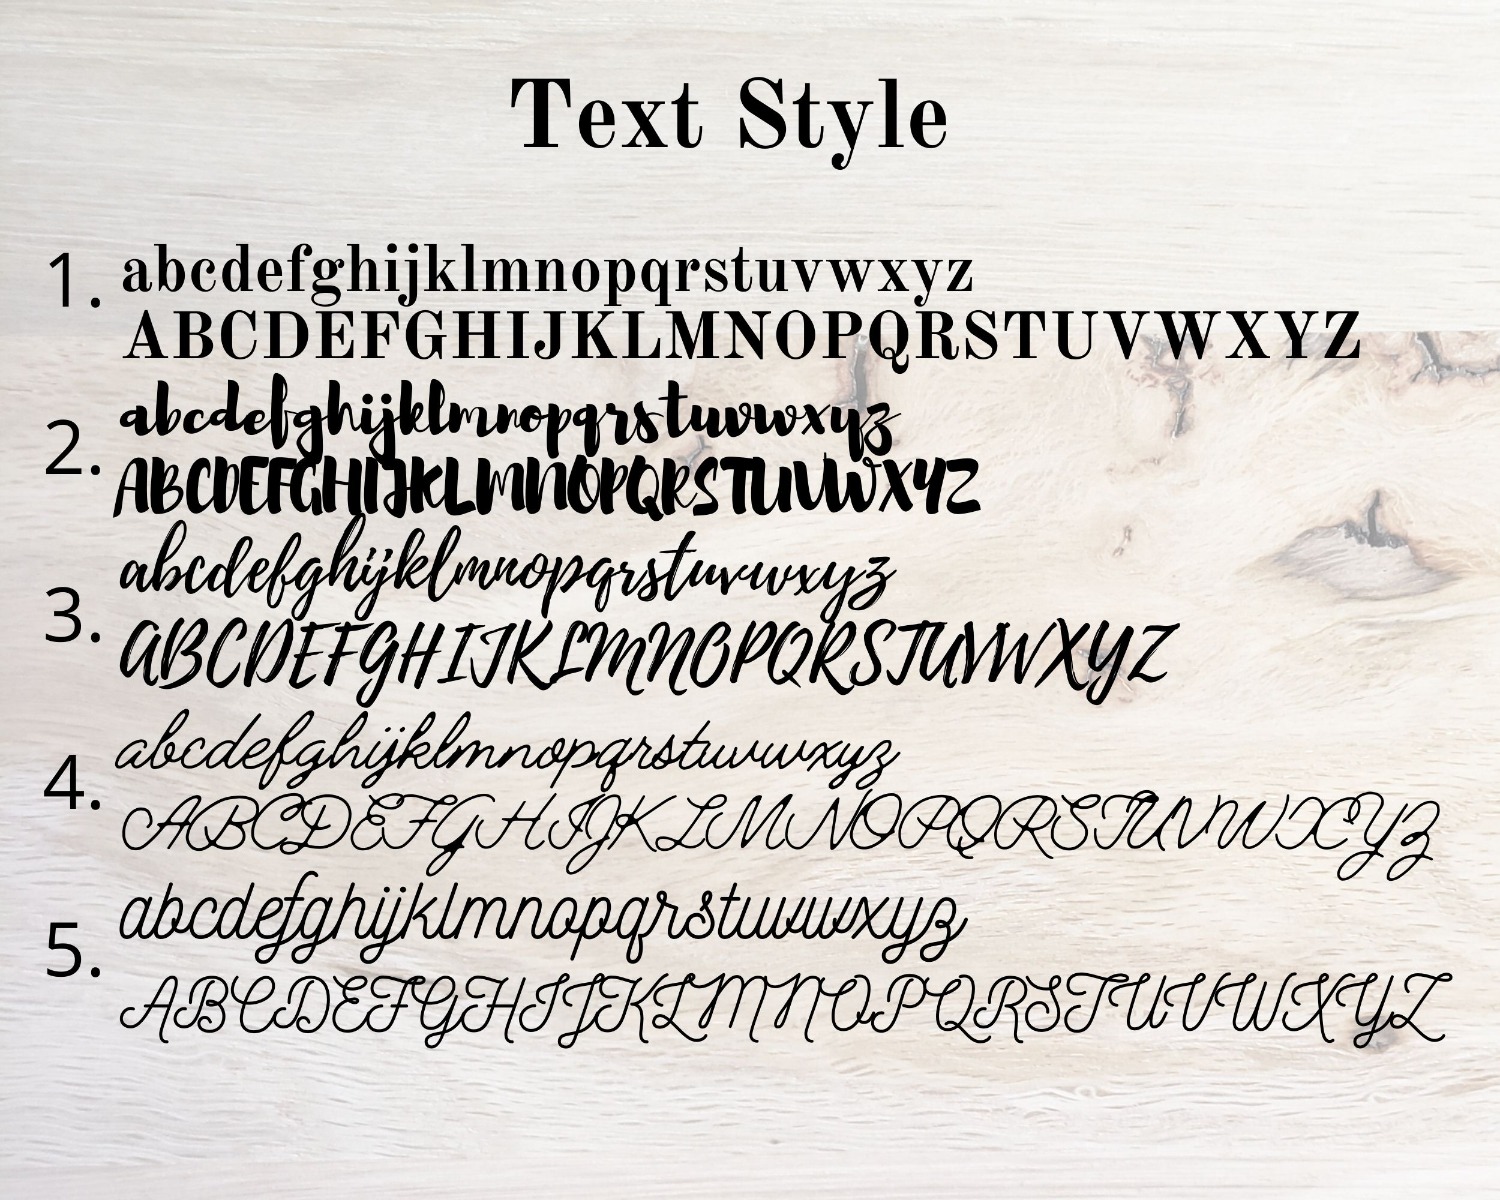 Text Style
1. abcdefghijklmnopqrstuvwxyz
ABCDEFGHIJKLMNOPQRSTUVWXYZ
2. abcdefghijklmnopqrstuvwxyz
ABCDEFGHIJKLMNOPQRSTUVWXYZ
3. abcdefghijklmnopqrstuvwxyz
ABCDEFGHIJKLMNOPQRSTUVWXYZ
4. abcdefghijklmnopqrstuvwxyz
ABCDEFGHIJKLMNOPQRSTUVWXYZ
5. abcdefghijklmnopqrstuvwxyz
ABCDEFGHIJKLMNOPQRSTUVWXYZ